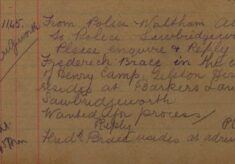 1145. From Police Waltham Ab
To Police Sawbridgewor
Please enquire & Reply
Frederick Brace in the c
of Henry Camp, Gilston
resides at Barkers Lane
Sawbridgeworth
Wanted for process
Reply
Fredk Brace resides at adres